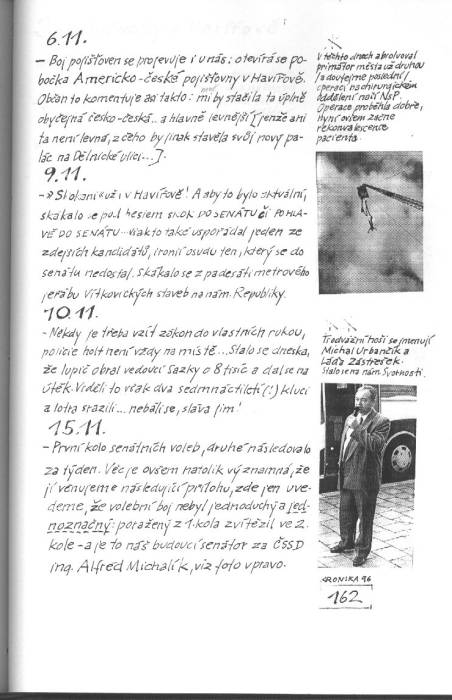 6.11.
- Boj pojišťoven se projevuje i u nás: otevírá se po-
bočka Americko-české pojišťovny v Havířově.
Občan to komentuje asi takto: mi by stačila ta úplně
obyčejná česko-česká... a hlavně levnější [jenže ani
ta není levná, z čeho by jinak stavěla svůj nový pa-
lác na Dělnické ulici...].
9.11.
- »Skokani« už i v Havířově! A aby to bylo aktuální,
skákalo se pod heslem SKOK DO SENÁTU ČI POHLA-
VĚ DO SENÁTU... však to také uspořádal jeden ze
zdejších kandidátů, ironií osudu ten, který se do
senátu nedostal. Skákalo se z padesátimetrového
jeřábu Vítkovických staveb na nám. Republiky.
10.11.
- Někdy je třeba vzít zákon do vlastních rukou,
policie holt není vždy na místě... Stalo se dneska,
že lupič obral vedoucí Sazky o 8 tisíc a dal se na
útěk. Viděli to však dva sedmnáctiletí (!) kluci
a lotra srazili... nebáli se, sláva jim!
15.11.
- První kolo senátních voleb, druhé následovalo
za týden. Věc je ovšem natolik významná, že
jí venujeme následující přílohu, zde jen uve-
deme, že volební boj nebyl jednoduchý a jed-
noznačný: poražený z 1. kola zvítězil ve 2.
kole - a je to náš budoucí senátor za ČSSD
ing. Alfred Michalík, viz foto vpravo.
V těchto dnech absolvoval
primátor města už druhou
/a doufejme poslední/
operaci na chirurgickém
oddělení naší NsP.
Operace proběhla dobře,
nyní ovšem začne
rekonvalescence
pacienta.
Ti odvážní hoši se jmenují
Michal Urbančík a
Láďa Zástřešek.
Stalo se na nám. Svornosti.
KRONIKA 96
162